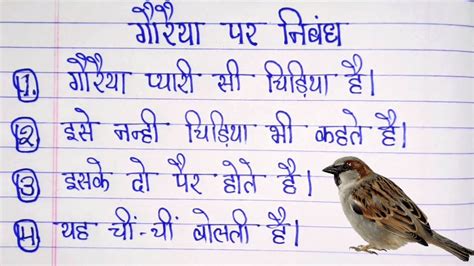 गौरैया पर निबंध
1. गौरैया प्यारी सी चिड़िया है।
2 इसे नन्ही चिड़िया भी कहते है।
3 इसके दो पैर होते है।
4 यह चीं-चीं बोलती है।